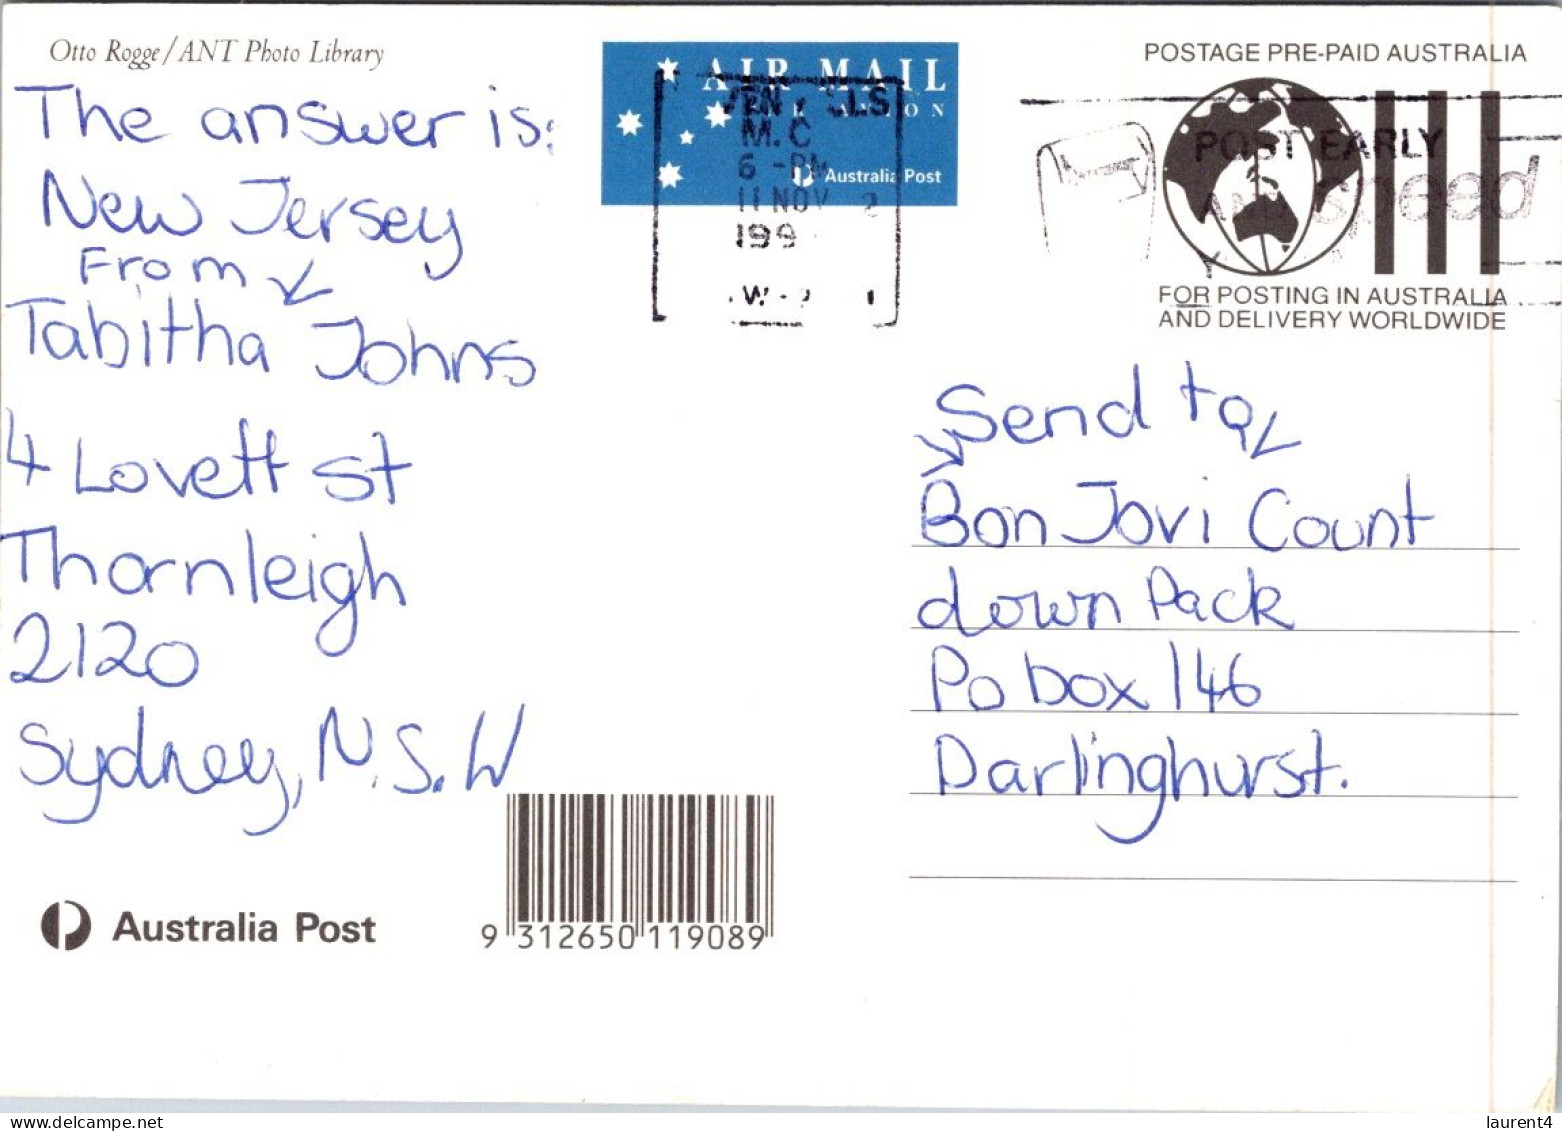 Otto Rogge/ANT Photo Library
The answer is:
New Jersey
From
Tabitha Johns
4 Lovett st
Thornleigh
2120
Sydney, N.S.W
Australia Post
9 312650 119089
AIR MAIL
PAR AVION
Australia Post
M.C
6 -PM
11 NOV
199
POSTAGE PRE-PAID AUSTRALIA
POST EARLY
speed
FOR POSTING IN AUSTRALIA
AND DELIVERY WORLDWIDE
Send to
Bon Jovi Count
down Pack
Po box 146
Darlinghurst.
laurent4